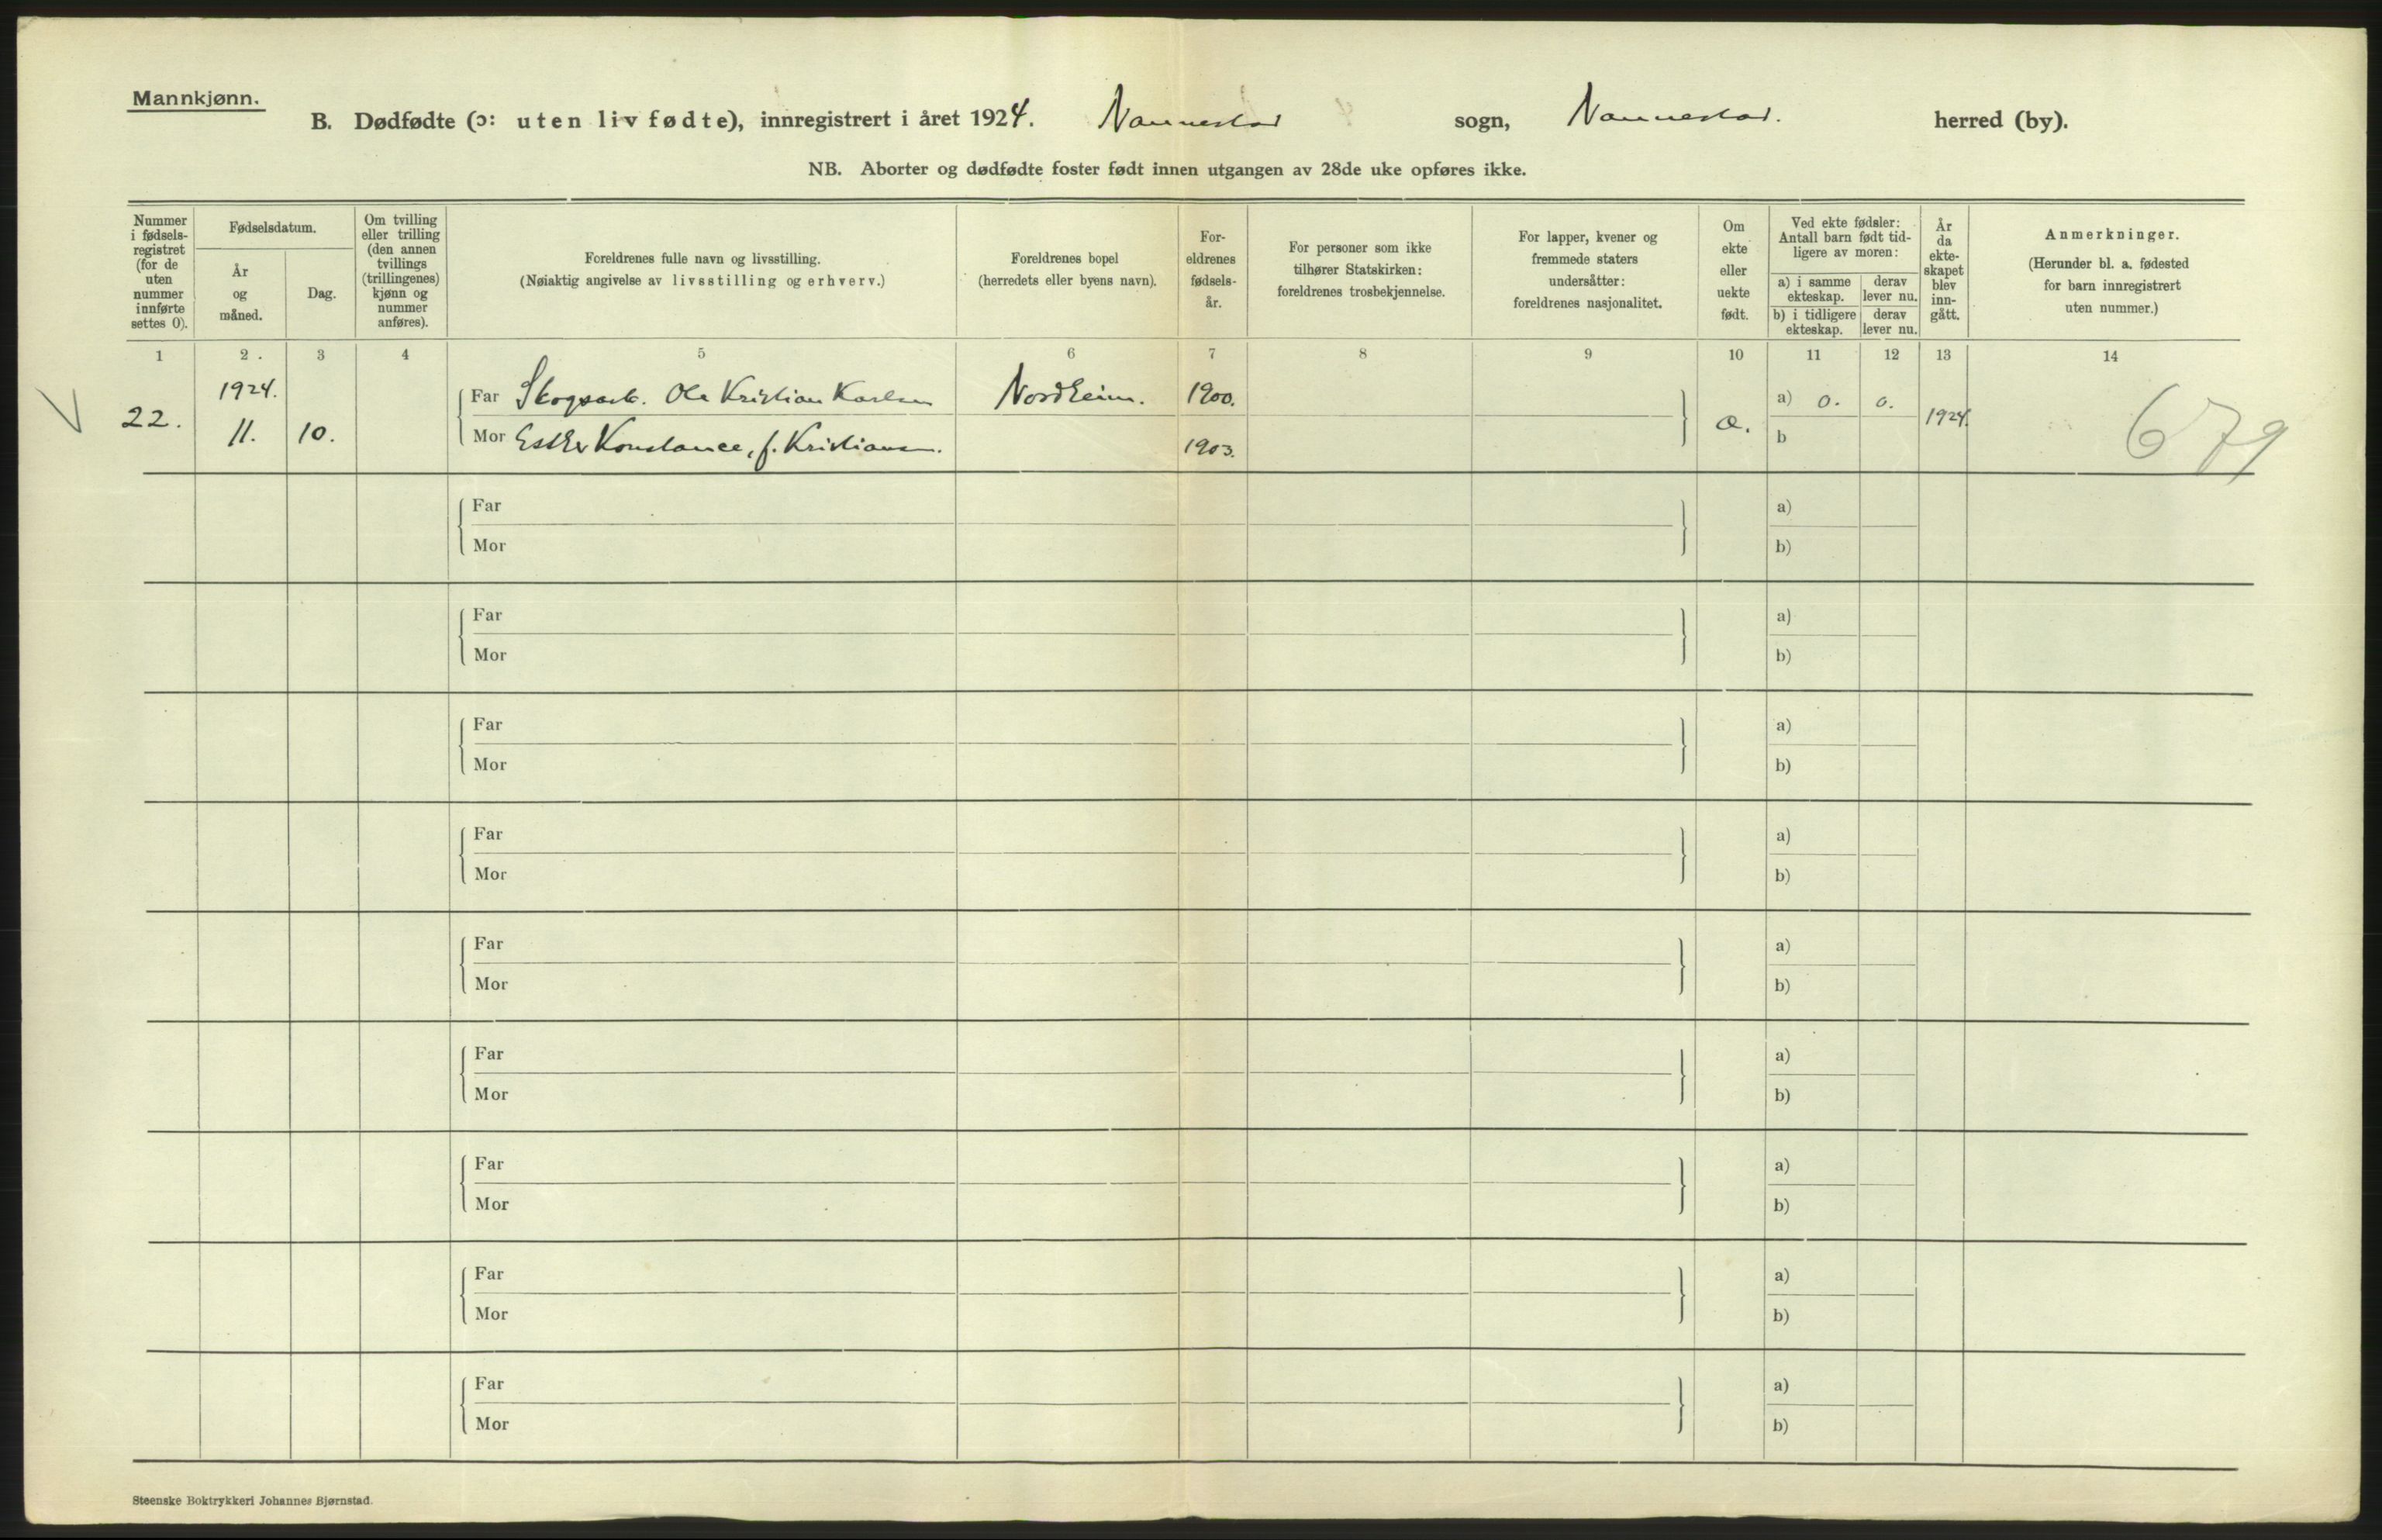 Mannkjønn.
B. Dødfødte (ɔ: uten liv fødte), innregistrert i året 1924. Nannestad sogn, Nannestad. herred (by).
NB. Aborter og dødfødte foster født innen utgangen av 28de uke opføres ikke.
Nummer i fødsels-registret (for de uten nummer innførte settes 0).
Fødselsdatum.
År og måned.
Dag.
Om tvilling eller trilling (den annen tvillings (trillingenes) kjønn og nummer anføres).
Foreldrenes fulle navn og livsstilling.
(Nøiaktig angivelse av livsstilling og erhverv.)
Foreldrenes bopel
(herredets eller byens navn).
For-eldrenes fødsels-år.
For personer som ikke tilhører Statskirken: foreldrenes trosbekjennelse.
For lapper, kvener og fremmede staters undersåtter: foreldrenes nasjonalitet.
Om ekte eller uekte født.
Ved ekte fødsler: Antall barn født tid-ligere av moren:
a) i samme ekteskap.
derav lever nu.
b) i tidligere ekteskap.
derav lever nu.
År da ekte-skapet blev inn-gått.
Anmerkninger.
(Herunder bl. a. fødested for barn innregistrert uten nummer.)
1 2. 3 4 5 6 7 8 9 10 11 12 13 14
V 22. 1924. 11. 10.
Far Skogsarb. Ole Kristian Karlsen Nordheim. 1900.
Mor Esther Konstance, f. Kristiansen. 1903.
a) 0. 0.
b
1924.
679
Far a)
Mor b)
Far a)
Mor b)
Far a)
Mor b)
Far a)
Mor b)
Far a)
Mor b)
Far a)
Mor b)
Far a)
Mor b)
Far a)
Mor b)
Far a)
Mor b)
Steenske Boktrykkeri Johannes Bjørnstad.